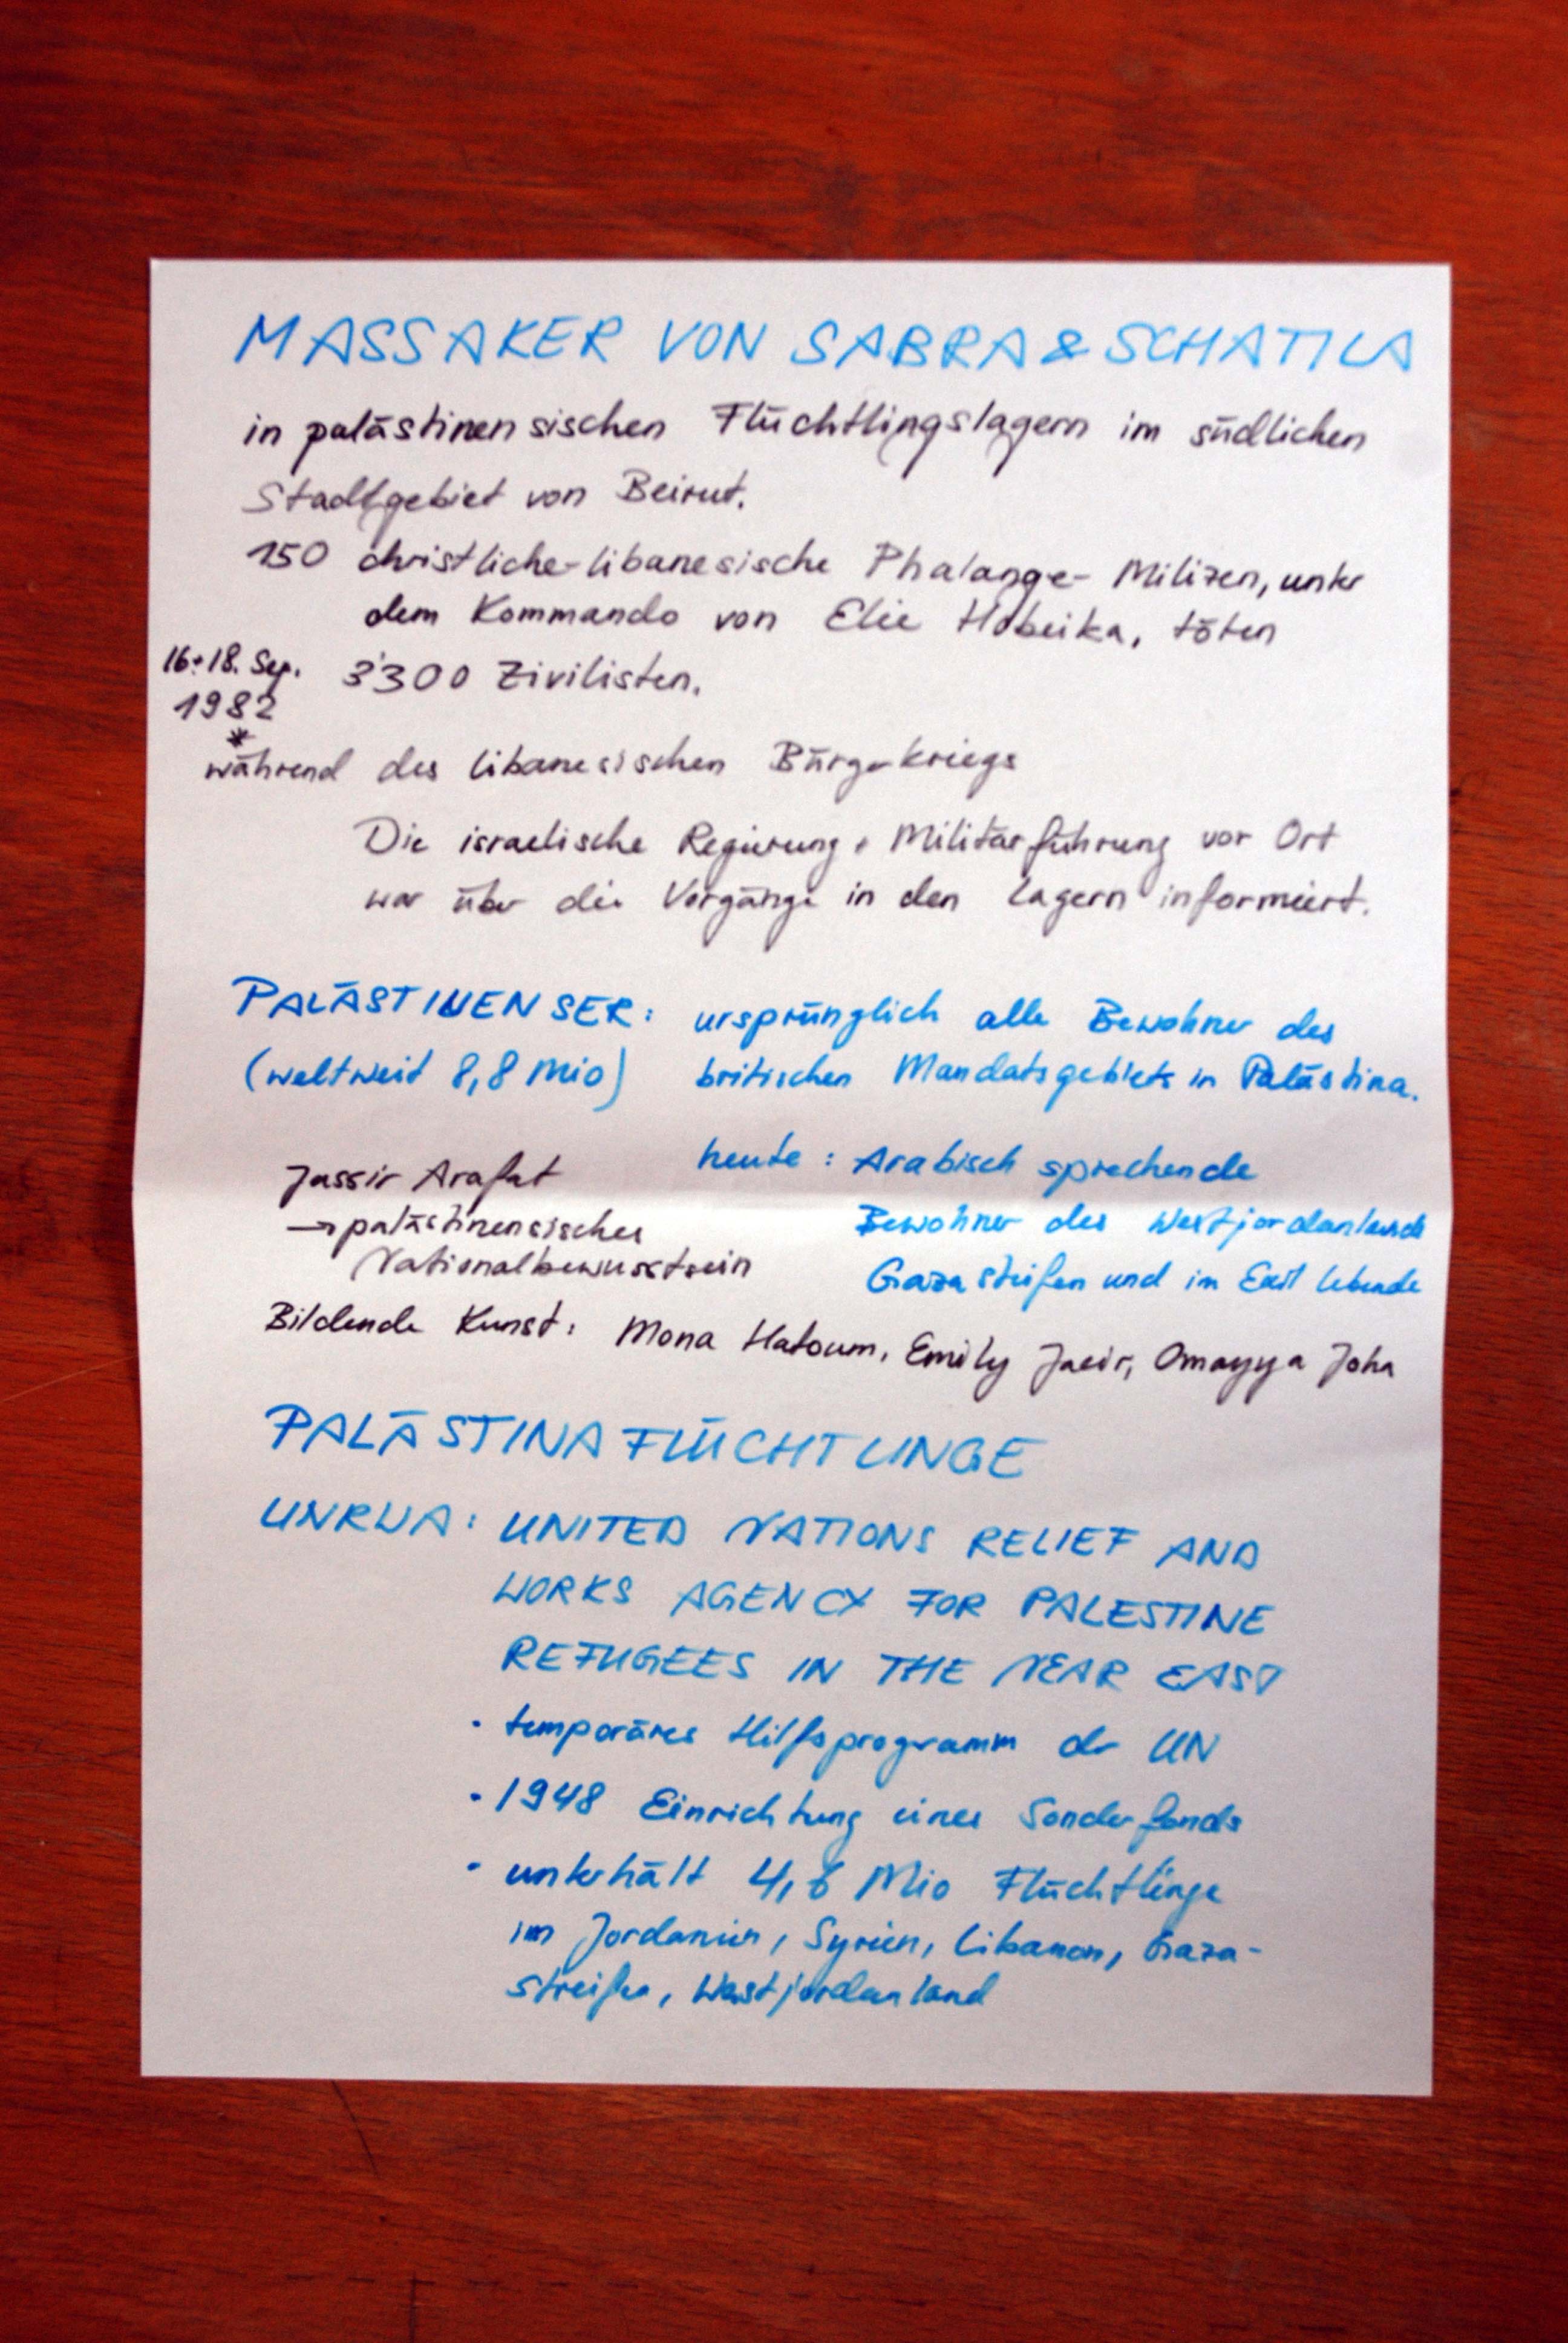 MASSAKER VON SABRA & SCHATILA
in palästinensischen Flüchtlingslagern im südlichen
Stadtgebiet von Beirut.
150 christliche-libanesische Phalange-Milizen, unter
dem Kommando von Elie Hobeika, töten
16.-18. Sep. 3'300 Zivilisten.
1982
*
während des libanesischen Bürgerkriegs
Die israelische Regierung + Militärführung vor Ort
war über die Vorgänge in den Lagern informiert.
PALÄSTINENSER: ursprünglich alle Bewohner des
(weltweit 8,8 Mio) britischen Mandatsgebiets in Palästina.
heute: Arabisch sprechende
Bewohner des Westjordanlands
Gazastreifen und im Exil lebende
Jassir Arafat
→ palästinensisches
Nationalbewusstsein
Bildende Kunst: Mona Hatoum, Emily Jacir, Omayya Joha
PALÄSTINAFLÜCHTLINGE
UNRWA: UNITED NATIONS RELIEF AND
WORKS AGENCY FOR PALESTINE
REFUGEES IN THE NEAR EAST
• temporäres Hilfsprogramm der UN
• 1948 Einrichtung eines Sonderfonds
• unterhält 4,6 Mio Flüchtlinge
im Jordanien, Syrien, Libanon, Gaza-
streifen, Westjordanland